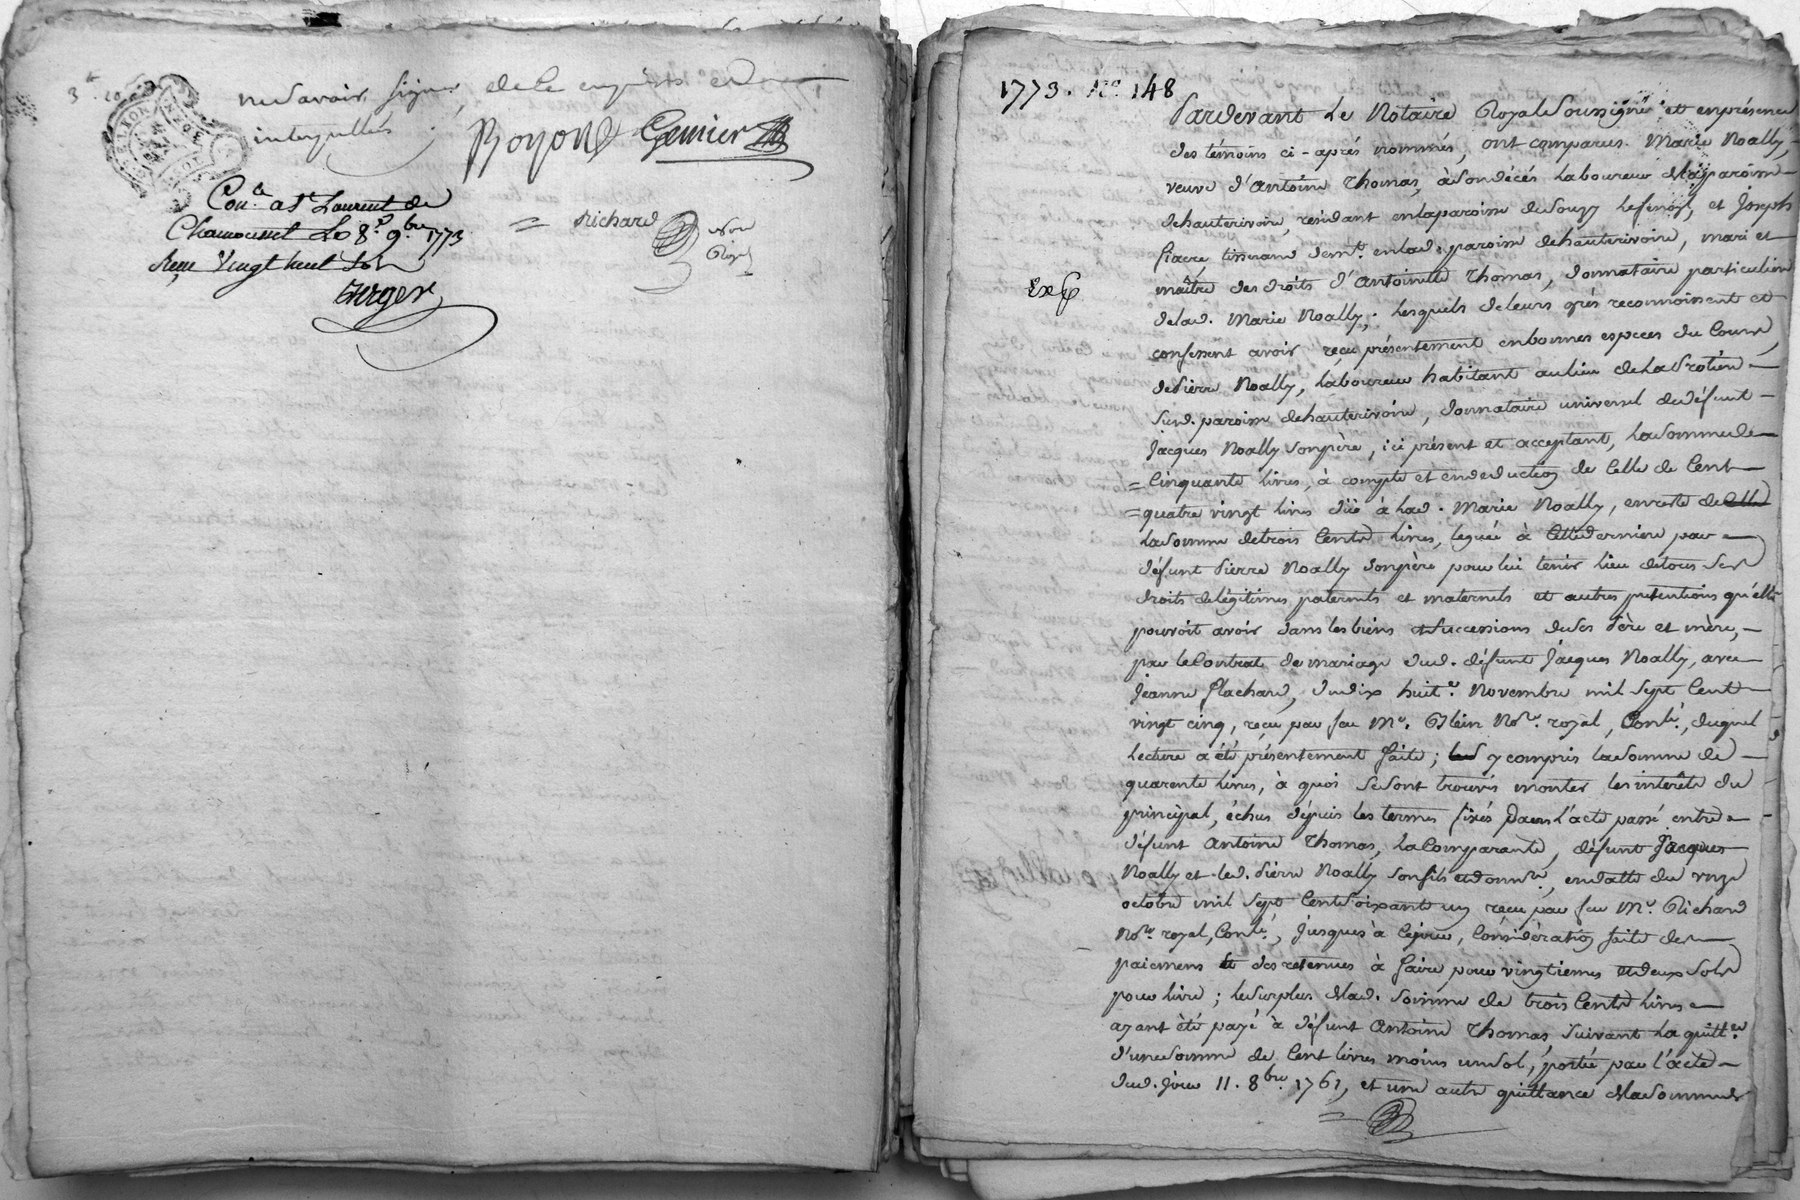 ne savoir signer, de ce enquis et
interpellés.
Royon Genier
Con.lé a St Laurent de
Chamousset Le 8.e 9.bre 1773
Reçu Vingt huit sols
Berger
Richard
Nore
Royal
1773. No. 148
Pardevant Le Notaire Royal Soussigné et en présence
des témoins ci-après nommés, ont comparus Marie Noally,
veuve d'Antoine Thomas, à son décés laboureur de la paroisse
de hauterivoire, résidant en la paroisse de Souzy Lesenoy, et Joseph
fiacre, tisserand dem.t en lad. paroisse de hauterivoire, mari et
maître des droits d'Antoinette Thomas, donnataire particuliere
de lad. Marie Noally; Lesquels de leurs grés reconnoissent et
confessent avoir reçu présentement en bonnes especes du Cours,
de Pierre Noally, laboureur habitant au lieu de
sud. paroisse de hauterivoire, donnataire universel de défunt
Jacques Noally son père, ici présent et acceptant, la somme de
Cinquante livres, à compte et en déduction de Celle de Cent
quatre vingt livres düe à lad. Marie Noally, en reste de
la Somme de trois Cents livres, leguée à Cette derniere par
défunt Pierre Noally son père pour lui tenir lieu de tous Ses
droits de légitimes paternels et maternels et autres pretentions qu'elle
pouvoit avoir dans les biens et Successions de Ses Père et mère,
par le Contrat de mariage dud. défunt Jacques Noally, avec
Jeanne flachard, du dix huit.e Novembre mil Sept Cent
vingt cinq, reçu par feu M.e Blein No.re royal, Con.lé, duquel
lecture a été présentement faite; y compris la Somme de
quarente livres, à quoi Se Sont trouvés monter les intérêts du
principal, échus depuis les termes fixés Dans l'acte passé entre
défunt Antoine Thomas, la Comparante, défunt Jacques
Noally et led. Pierre Noally son fils et donn.re, en datte du onze
octobre mil Sept Cent Soixante un reçu par feu M.e Richard
No.re royal, Con.lé, Jusques à Cejour, Considération faite des
paiemens et des retenues à faire pour vingtiemes et deux Sols
pour livre; le Surplus de lad. Somme de trois Cents livres
ayant été payé à défunt Antoine Thomas, Suivant la quitt.ce
d'une Somme de Cent livres moins un Sol, portée par l'acte
dud. jour 11. 8.bre 1761, et une autre quittance de la Somme de